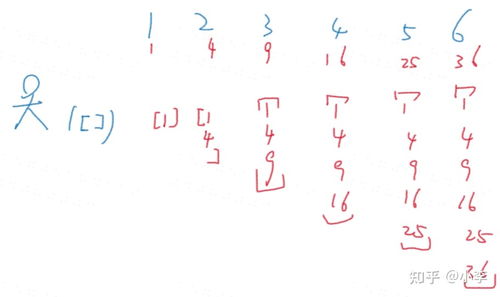 1 2 3 4 5 6
1 4 9 16 25 36
([]) [1] [1 [1 [1 [1 [1
4 4 4 4 4
] 9 9 9 9
] 16 16 16
] 25 25
] 36
]
知乎 @小李